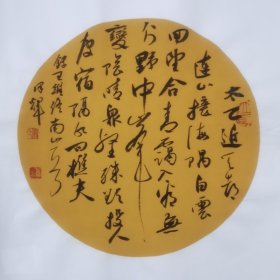 太乙近天都
連山接海隅白雲
回望合青靄入看無
分野中峰
變陰晴眾壑殊欲投人
處宿隔水问樵夫
錄王維終南山